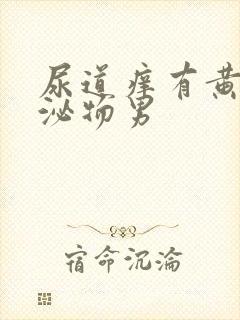 尿道痒有黄
泌物男
宿命沉沦